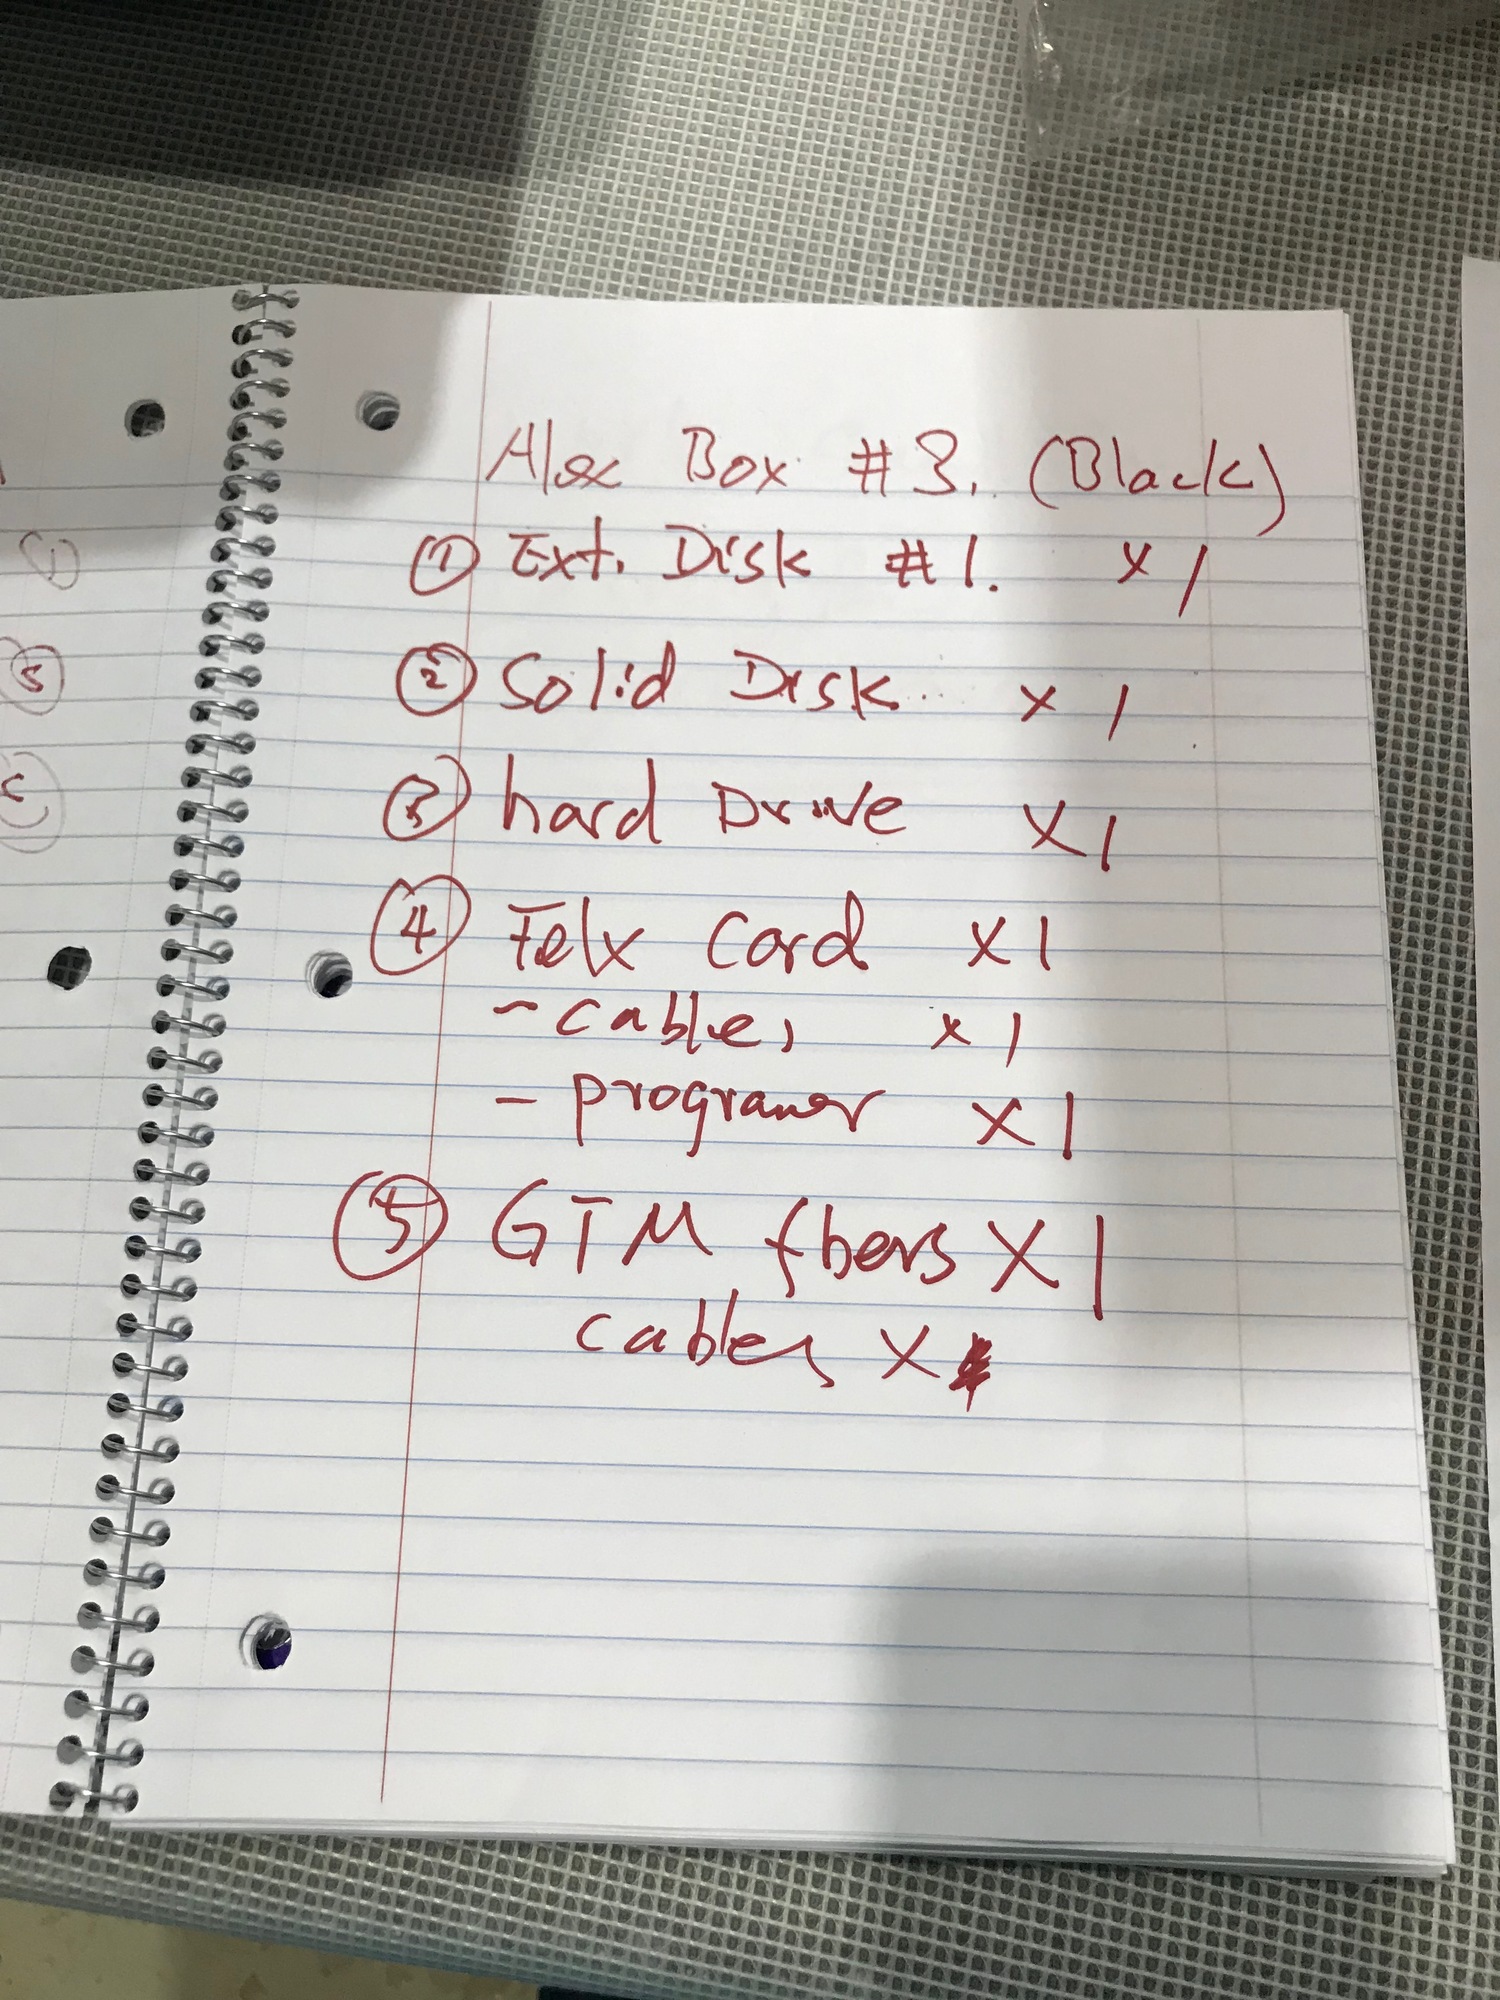 Alex Box #3. (Black)
① Ext. Disk #1. x 1
② Solid Disk x 1
③ hard Drive x 1
④ Felx Card x 1
- cables x 1
- programer x 1
⑤ GTM fbers x 1
cables x